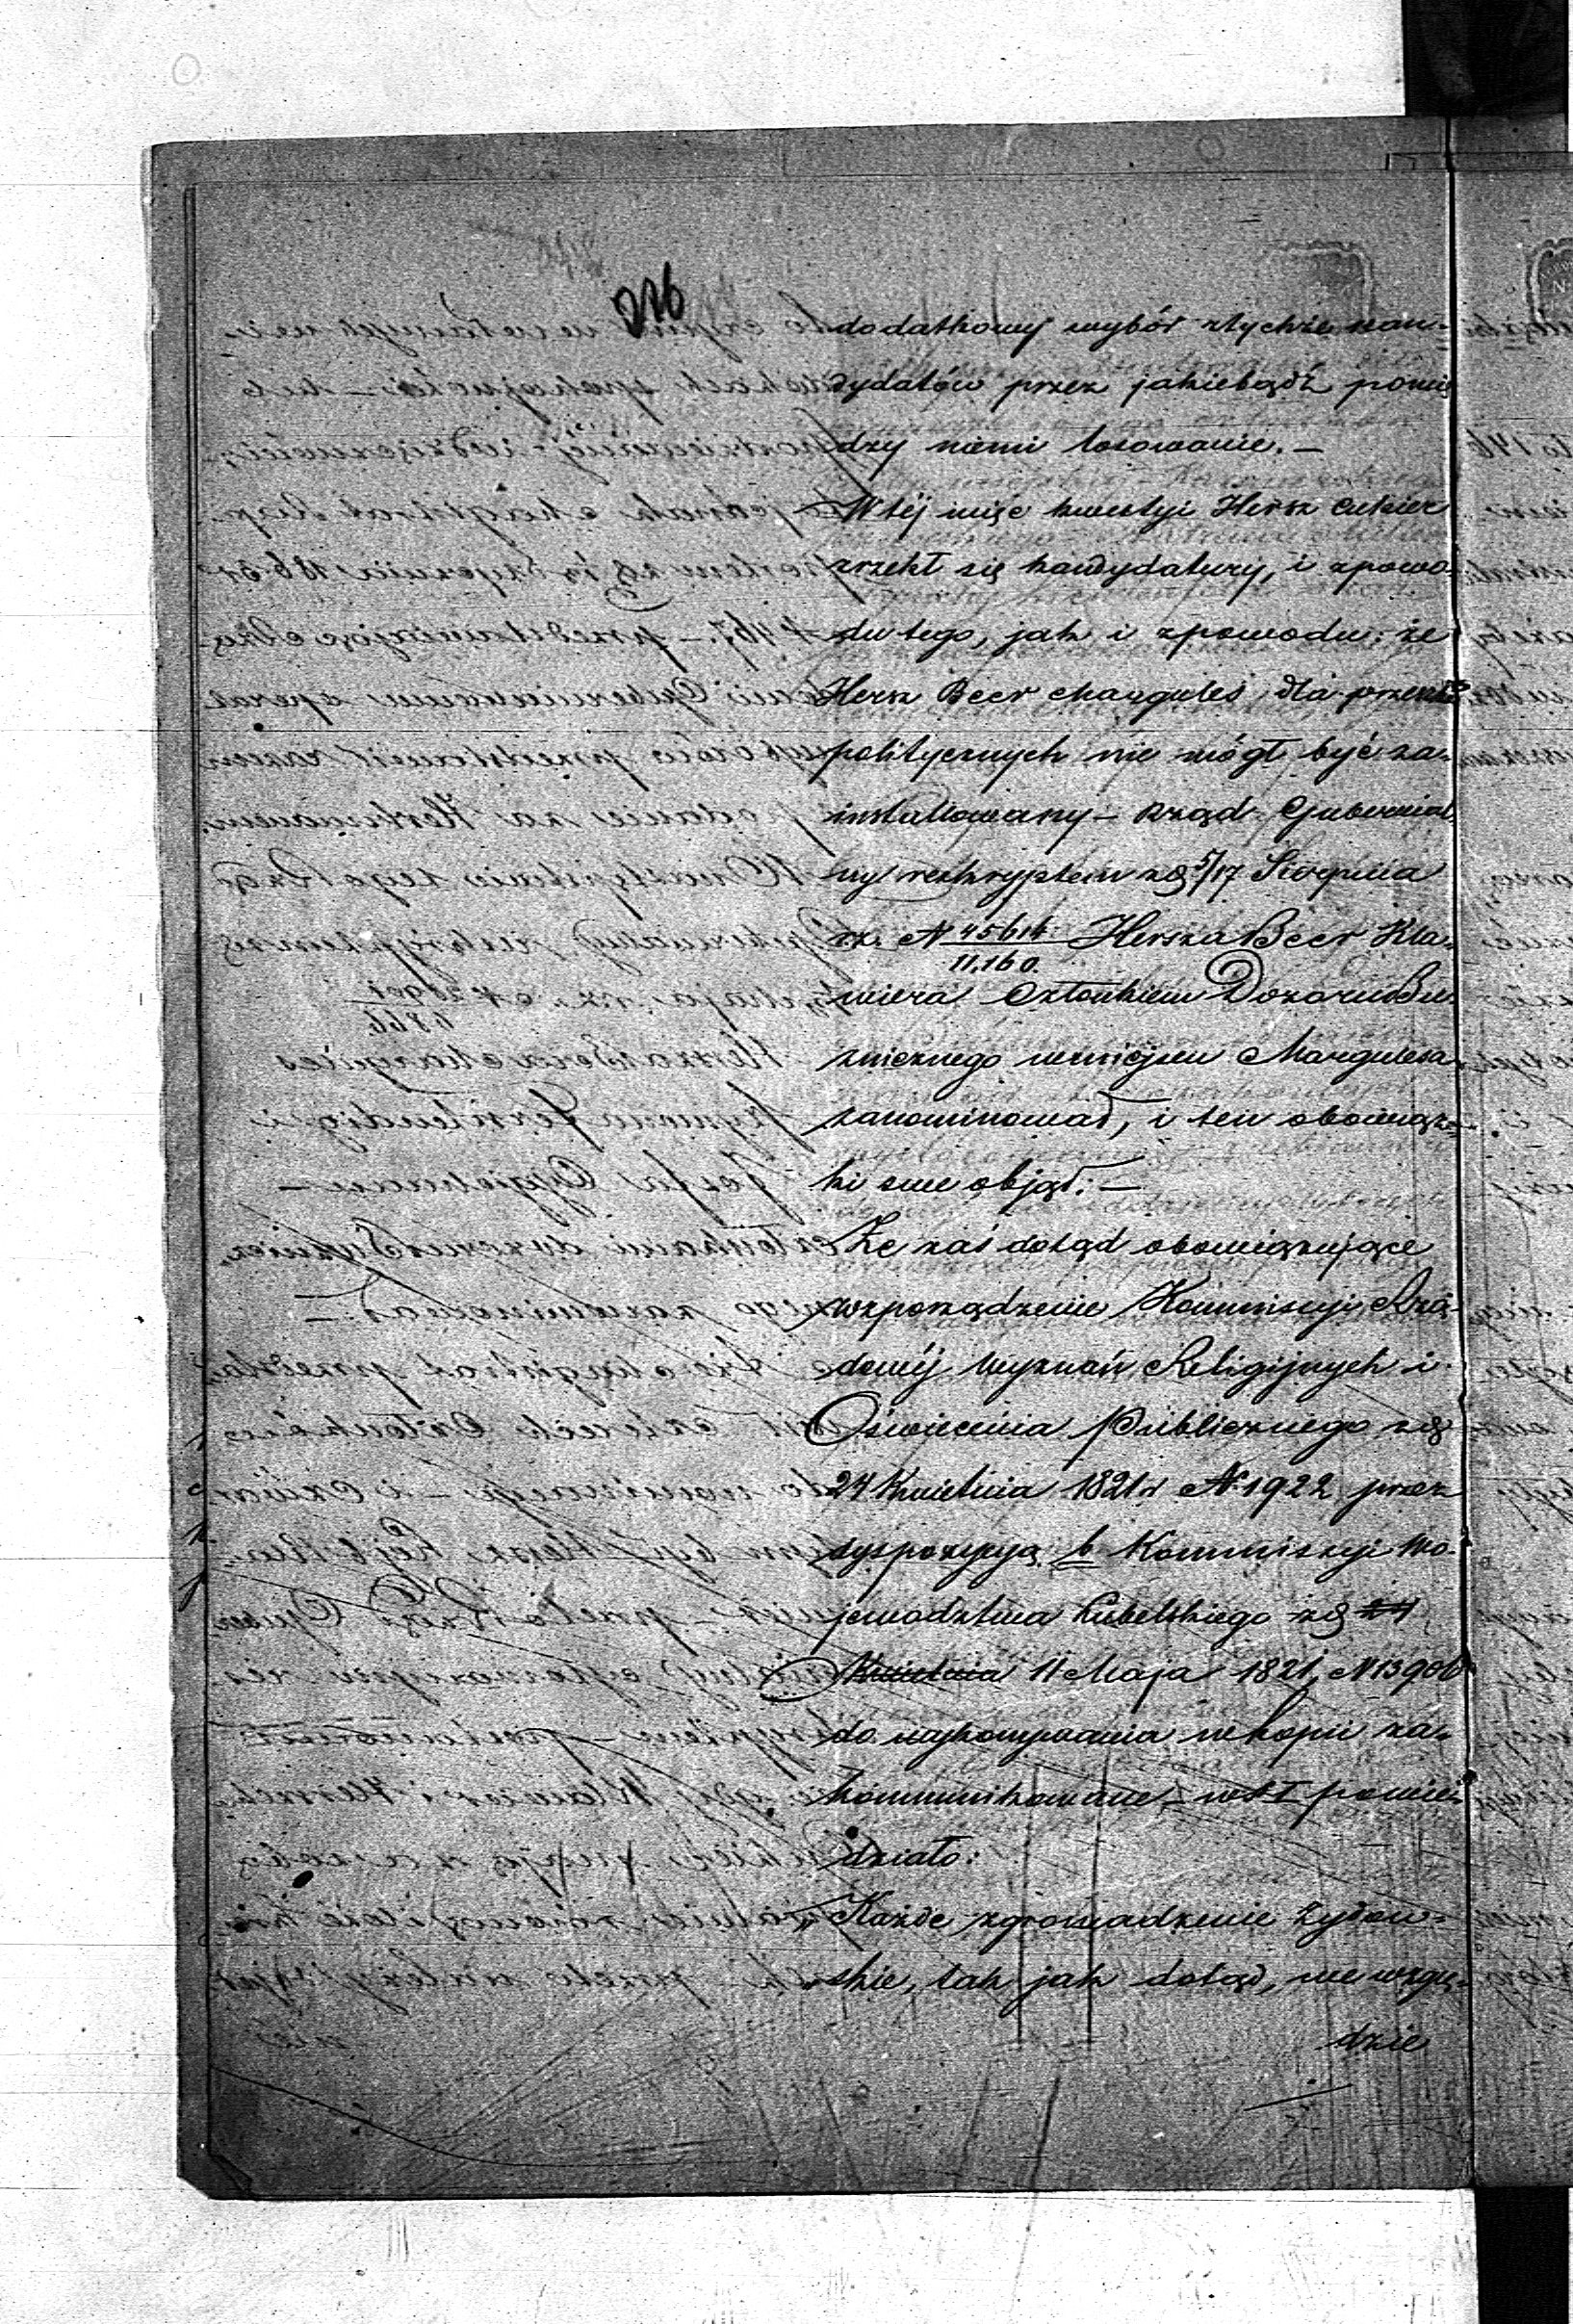 216
dodatkowy wybór z tychże kan=
dydatów przez jakiebądź pomię
dzy niemi losowanie. —
W téj więc kwestyi Hersz Cukier
zrzekł się kandydatury, i z powo=
du tego, jak i z powodu: że
Hersz Beer Margules dla
politycznych nie mógł być za=
installowany — Rząd Gubernial
ny reskryptem z d 5/17 Sierpnia
rz. N 45616/11,160. Hersza Beer Kla=
wiera Członkiem Dozoru Bu
źniczego w miejscu Margulesa
zanominował, i ten obowiąz=
ki swe objął: —
Że zaś dotąd obowiązujące
rozporządzenie Kommissyi Rzą=
dowéj Wyznań Religijnych i
Oświecenia Publicznego z d
24 Kwietnia 1821 r N 1922 przez
dyspozycyą b Kommissyi Wo=
jewodztwa Lubelskiego z d 24
Kwietnia 11 Maja 1821, N 13906
do wykonywania w kopii za=
kommunikowane — w § I powie=
działo:
„Każde zgromadzenie żydow=
skie, tak jak dotąd, we wzglę=
dzie